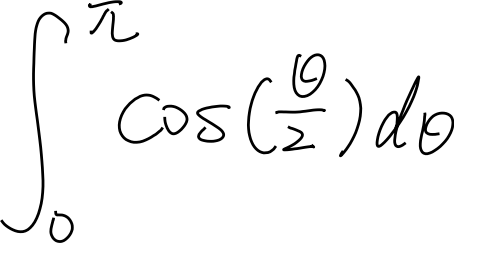 \int_0^{\pi} \cos(\frac{\theta}{2}) d\theta